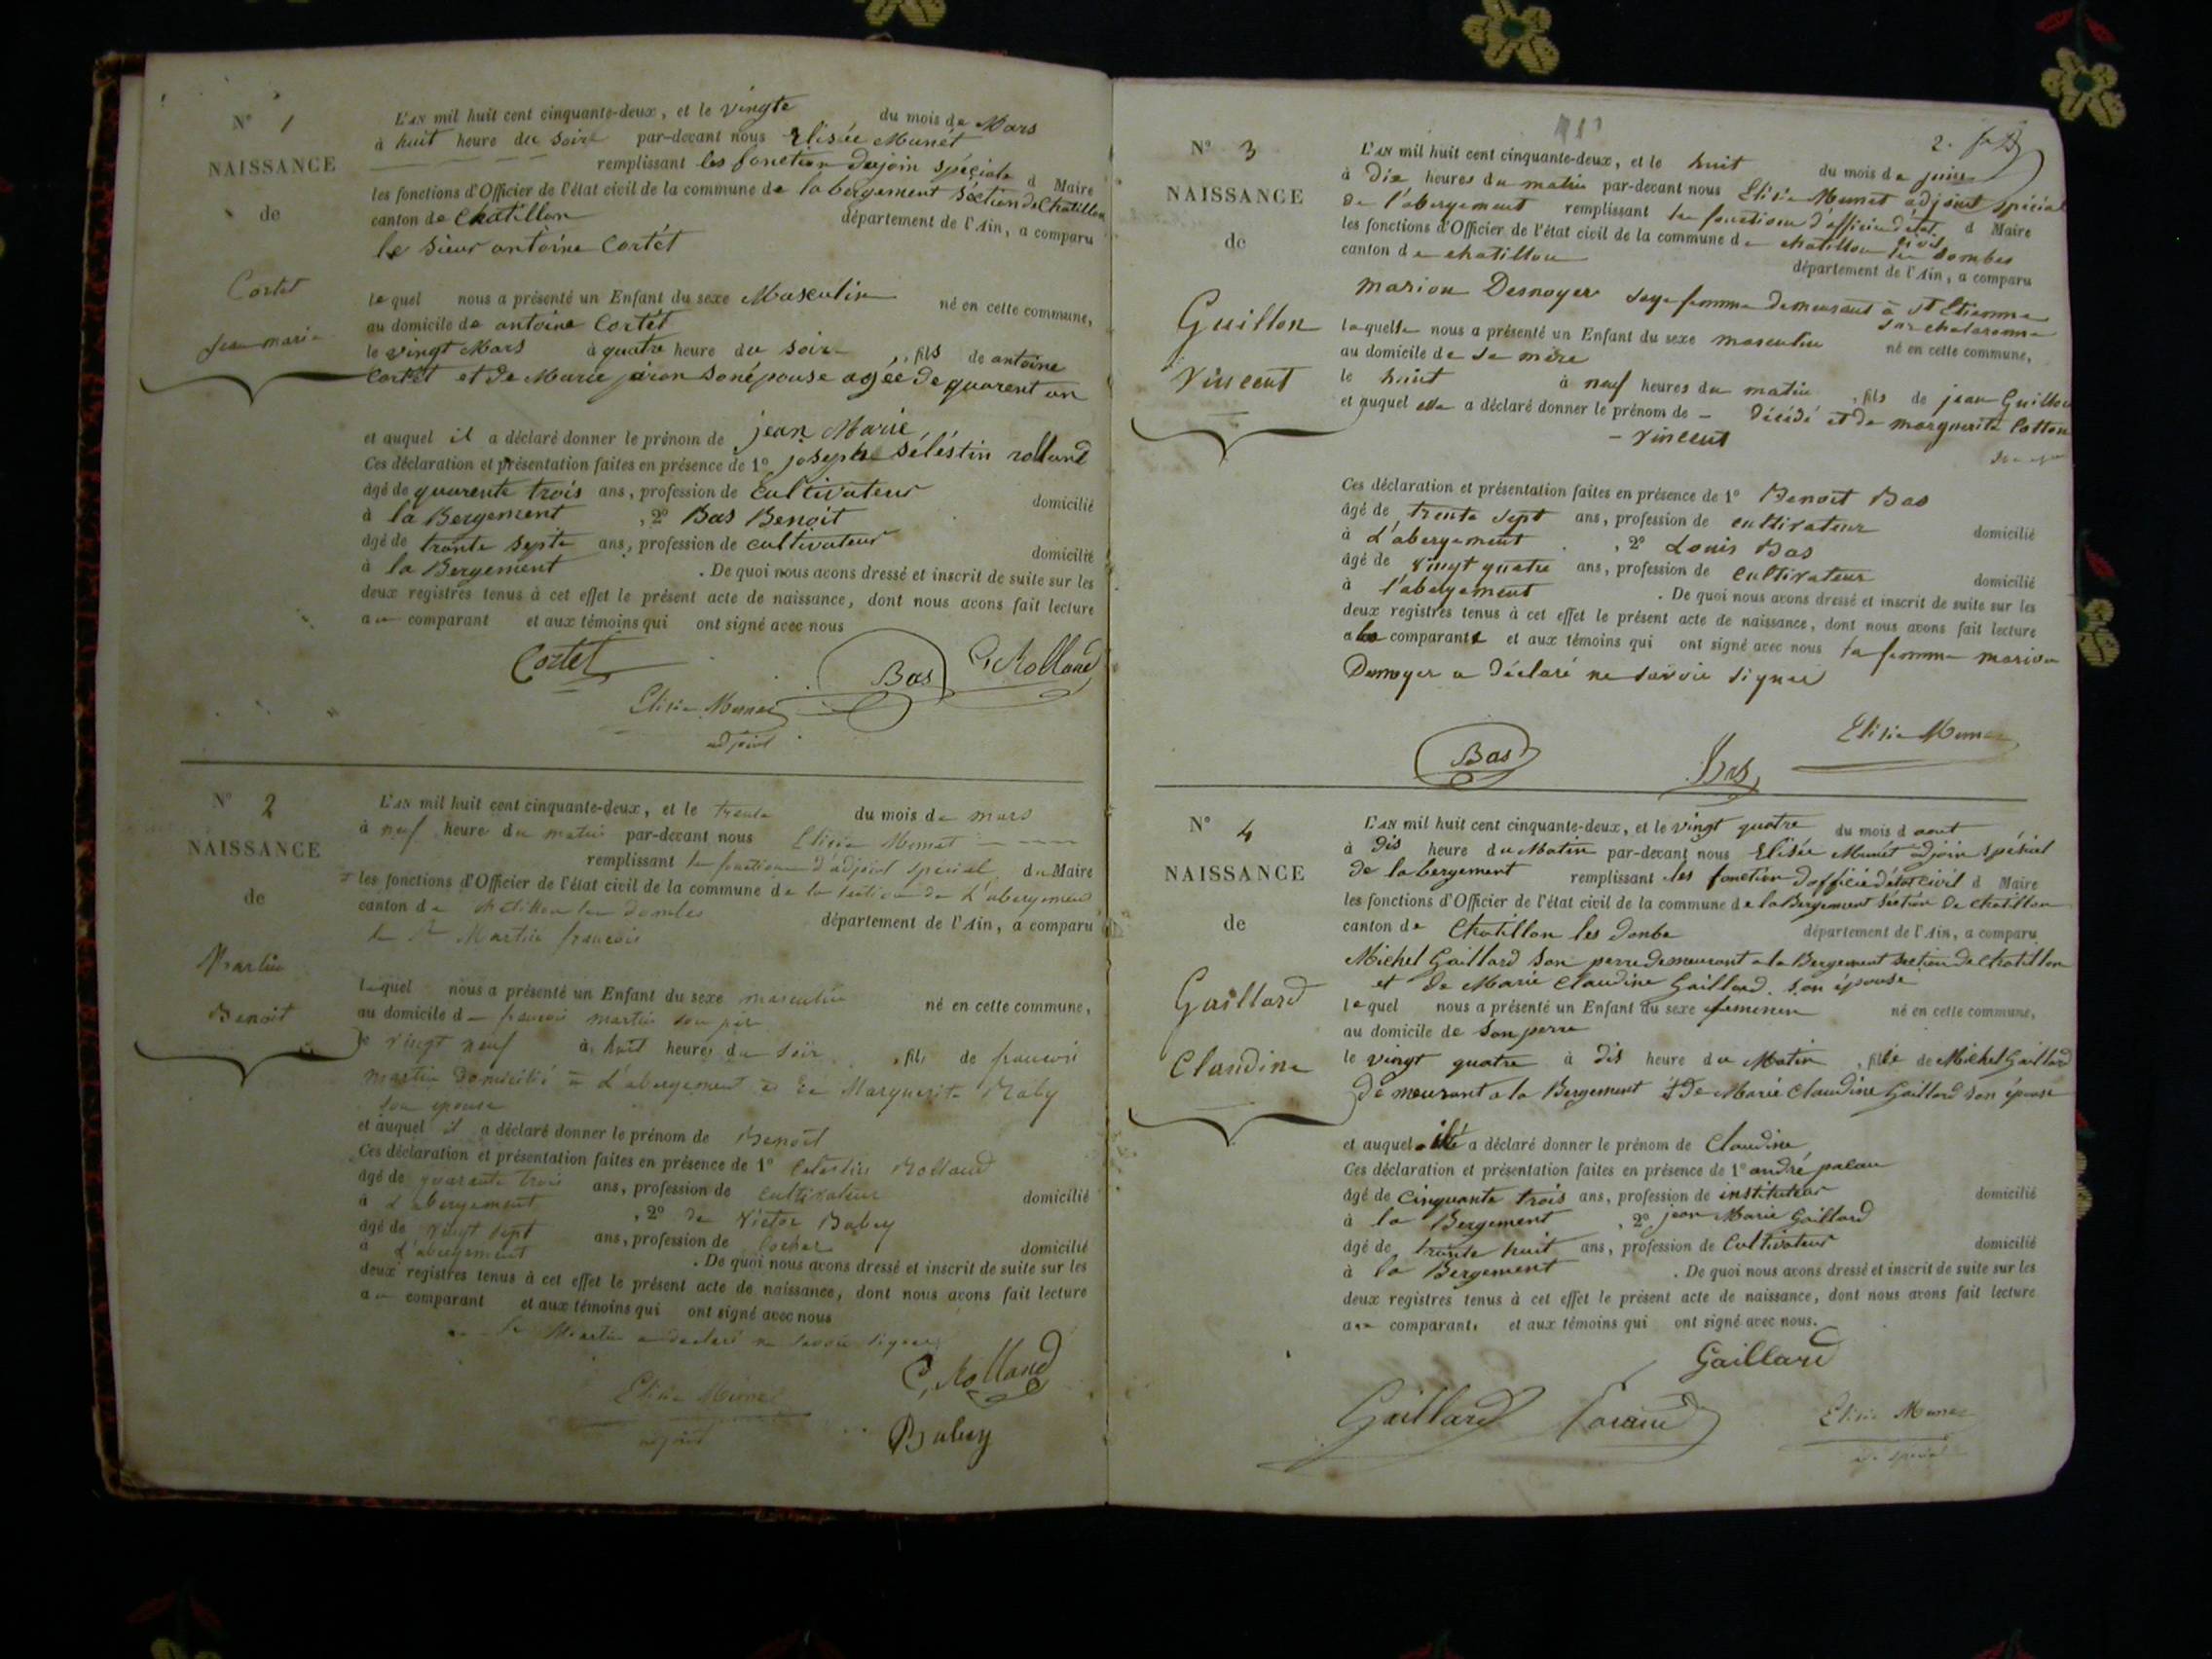 N° 1
NAISSANCE
de
Cortet
jean marie
L'AN mil huit cent cinquante-deux, et le vingte du mois de Mars
à huit heure du soire par-devant nous Elisée Munét
remplissant les fonction dajoin spéciale d Maire
les fonctions d'Officier de l'état civil de la commune de la bergement séction de Chatillon
canton de Chatillon département de l'Ain, a comparu
le sieur antoine Cortét
lequel nous a présenté un Enfant du sexe Masculin né en cette commune,
au domicile de antoine Cortét
le vingt Mars à quatre heure du soire, fils de antoine
Cortét et de Marie son épouse agée de quarent an
et auquel il a déclaré donner le prénom de jean Marie,
Ces déclaration et présentation faites en présence de 1° joseph Séléstin rolland
âgé de quarente trois ans, profession de Cultivateur domicilié
à la Bergement, 2° Bas Benoit
âgé de trante septe ans, profession de cultivateur domicilié
à la Bergement. De quoi nous avons dressé et inscrit de suite sur les
deux registres tenus à cet effet le présent acte de naissance, dont nous avons fait lecture
au comparant et aux témoins qui ont signé avec nous
Cortet
Bas
C, Rolland
Elisée Munet
adjoint
N° 2
NAISSANCE
de
Martin
Benoit
L'AN mil huit cent cinquante-deux, et le trente du mois de mars
à neuf heure du matin par-devant nous Elisée Munet
remplissant les fonctions d'adjoint spécial du Maire
les fonctions d'Officier de l'état civil de la commune de la section de L'abergement
canton de chatillon les dombes département de l'Ain, a comparu
le Sr Martin francois
lequel nous a présenté un Enfant du sexe masculin né en cette commune,
au domicile d francois martin son père
le vingt neuf à huit heures du soir, fils de francois
martin domicilié à L'abergement et de Marguerite Raby
son épouse
et auquel il a déclaré donner le prénom de Benoit
Ces déclaration et présentation faites en présence de 1° Celestin Rolland
âgé de quarante trois ans, profession de cultivateur domicilié
à L'abergement, 2° de Victor Babey
âgé de vingt sept ans, profession de domicilié
à L'abergement. De quoi nous avons dressé et inscrit de suite sur les
deux registres tenus à cet effet le présent acte de naissance, dont nous avons fait lecture
au comparant et aux témoins qui ont signé avec nous
le Sr Martin a déclaré ne savoir signer
C, Rolland
Elisée Munet
adjoint
Babey
2.
N° 3
NAISSANCE
de
Guillon
Vincent
L'AN mil huit cent cinquante-deux, et le huit du mois de juin
à dix heures du matin par-devant nous Elisée Munet adjoint spécial
de l'abergement remplissant les fonctions d'officier d'état civil d Maire
les fonctions d'Officier de l'état civil de la commune de chatillon les Dombes
canton de chatillon département de l'Ain, a comparu
Marion Desnoyer sage femme demeurant à St Etienne
sur chalaronne
laquelle nous a présenté un Enfant du sexe masculin né en cette commune,
au domicile de sa mère
le huit à neuf heures du matin, fils de jean Guillon
et auquel elle a déclaré donner le prénom de - décédé et de marguerite Cotton
- Vincent
Ces déclaration et présentation faites en présence de 1° Benoit Bas
âgé de trente sept ans, profession de cultivateur domicilié
à L'abergement, 2° Louis Bas
âgé de vingt quatre ans, profession de cultivateur domicilié
à l'abergement. De quoi nous avons dressé et inscrit de suite sur les
deux registres tenus à cet effet le présent acte de naissance, dont nous avons fait lecture
a la comparante et aux témoins qui ont signé avec nous la femme marion
Desnoyer a déclaré ne savoir signer
Elisée Munet
Bas
Bas
N° 4
NAISSANCE
de
Gaillard
Claudine
L'AN mil huit cent cinquante-deux, et le vingt quatre du mois d aout
à dis heure du Matin par-devant nous Elisée Munét adjoin spésial
de la bergement remplissant les fonction dofficié détat civil d Maire
les fonctions d'Officier de l'état civil de la commune de la Bergement séction de chatillon
canton de Chatillon les donbe département de l'Ain, a comparu
Michel Gaillard son perre demeurant a la Bergement section de Chatillon
et de Marie Claudine Gaillard son épouse
lequel nous a présenté un Enfant du sexe feminen né en cette commune,
au domicile de son perre
le vingt quatre à dis heure du Matin, fille de Michel Gaillard
démeurant a la Bergement et de Marie Claudine Gaillard son épouse
et auquel a déclaré donner le prénom de Claudine
Ces déclaration et présentation faites en présence de 1° andré
âgé de Cinquante trois ans, profession de instituteur domicilié
à la Bergement, 2° jean Marie Gaillard
âgé de trante huit ans, profession de Cultivateur domicilié
à la Bergement. De quoi nous avons dressé et inscrit de suite sur les
deux registres tenus à cet effet le présent acte de naissance, dont nous avons fait lecture
aux comparant, et aux témoins qui ont signé avec nous.
Gaillard
Gaillard
Elisée Munet